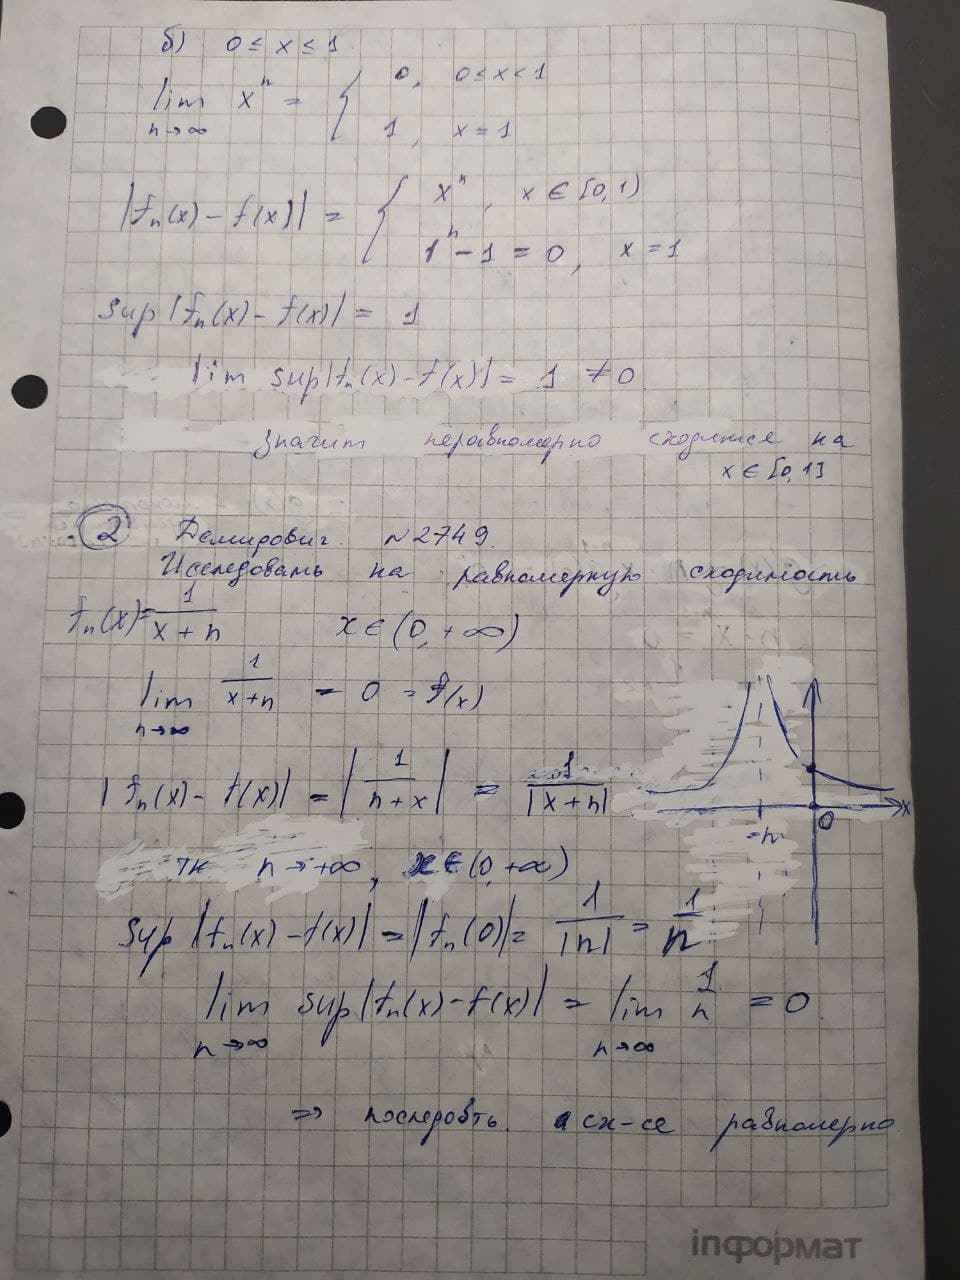 б) 0 ≤ x ≤ 1
lim xⁿ = { 0, 0≤x<1
n→∞ 1, x=1
|fₙ(x) - f(x)| = { xⁿ, x ∈ [0,1)
1ⁿ - 1 = 0, x = 1
sup |fₙ(x) - f(x)| = 1
lim sup|fₙ(x) - f(x)| = 1 ≠ 0
значит неравномерно сходится на
x ∈ [0,1]
② Демидович №2749.
Исследовать на равномерную сходимость
fₙ(x) = 1/(x+n) x ∈ (0, +∞)
lim 1/(x+n) = 0 = f(x)
n→∞
|fₙ(x) - f(x)| = |1/(n+x)| = 1/|x+n|
x
0
-n
тк n→+∞, x∈(0,+∞)
sup |fₙ(x) - f(x)| = |fₙ(0)| = 1/|n| = 1/n
lim sup|fₙ(x) - f(x)| = lim 1/n = 0.
n→∞ n→∞
⇒ последовть. сх-ся равномерно.
інформат